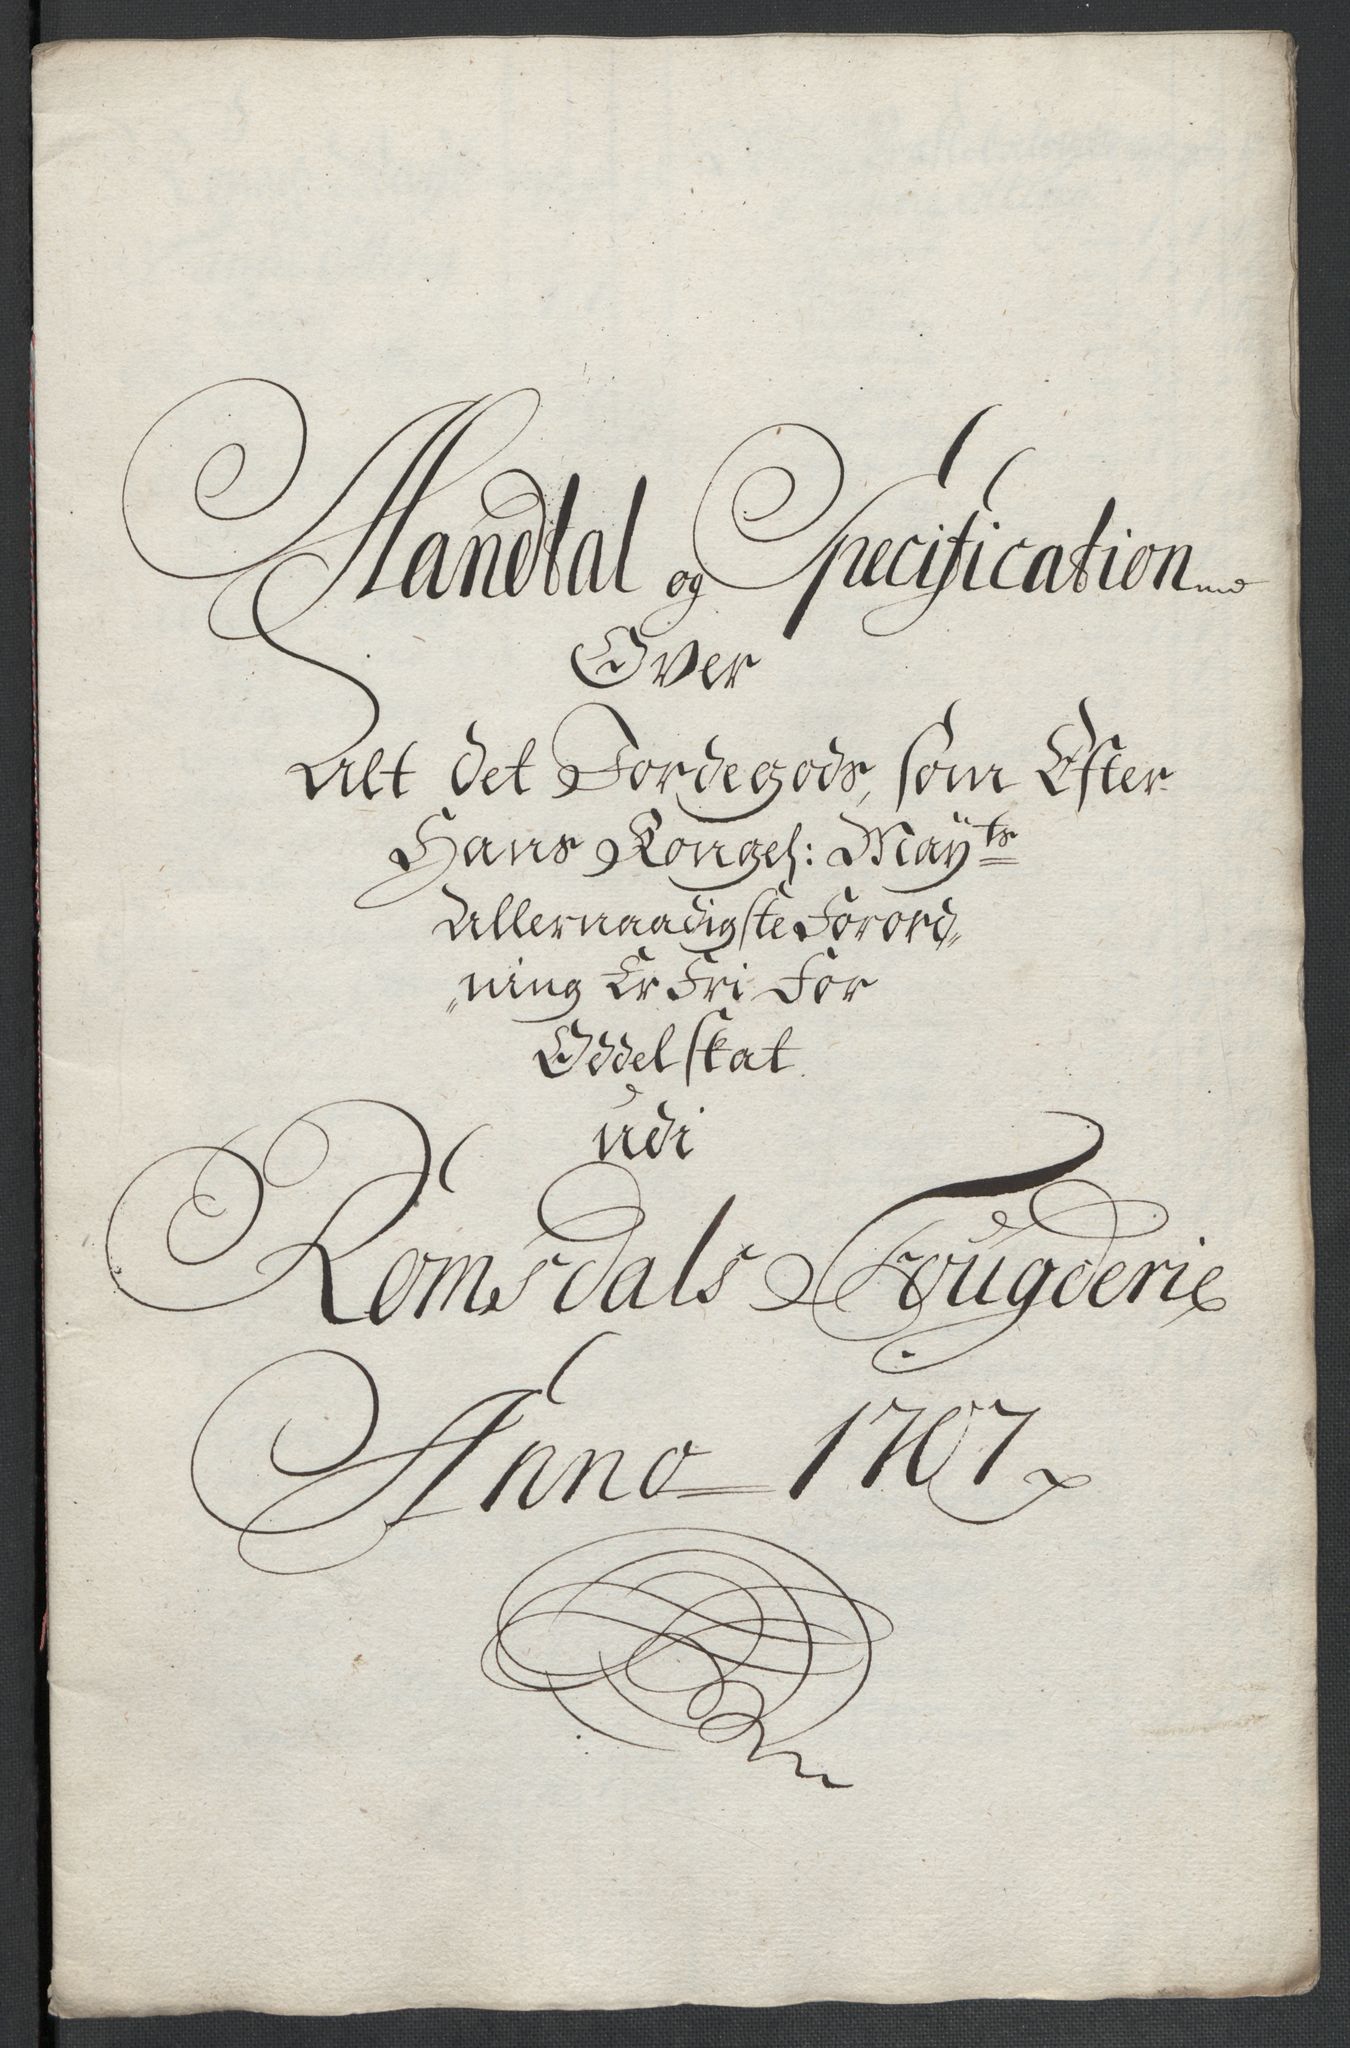 Mandtal og Specification
Over
Alt det Jordegods, som Efter
Hans Kongel: Mayts
Allernaadigste Forord,,
,,ning Er Fri For
Oddel skat
udi
Romsdals Fougderie
Anno 1707